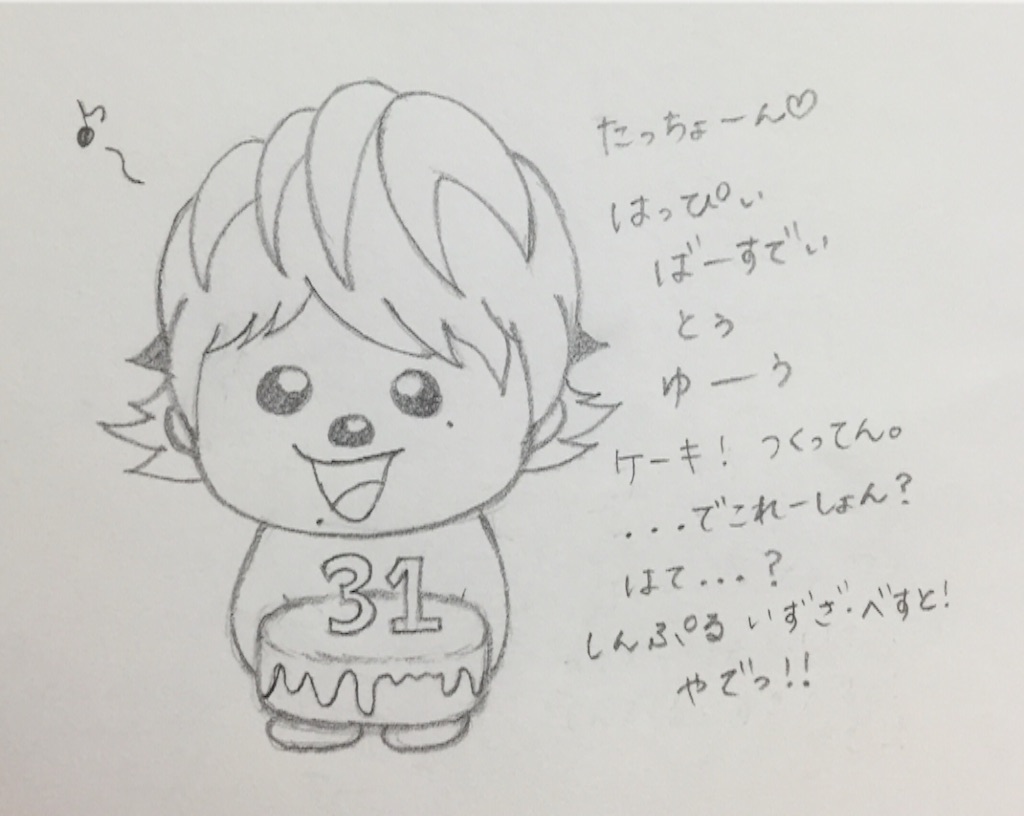 たっちょーん♡
はっぴぃ
ばーすでぃ
とぅ
ゆーう
ケーキ! つくってん。
...でこれーしょん?
はて...?
しんぷる いずざ・べすと!
やでっ!!
31